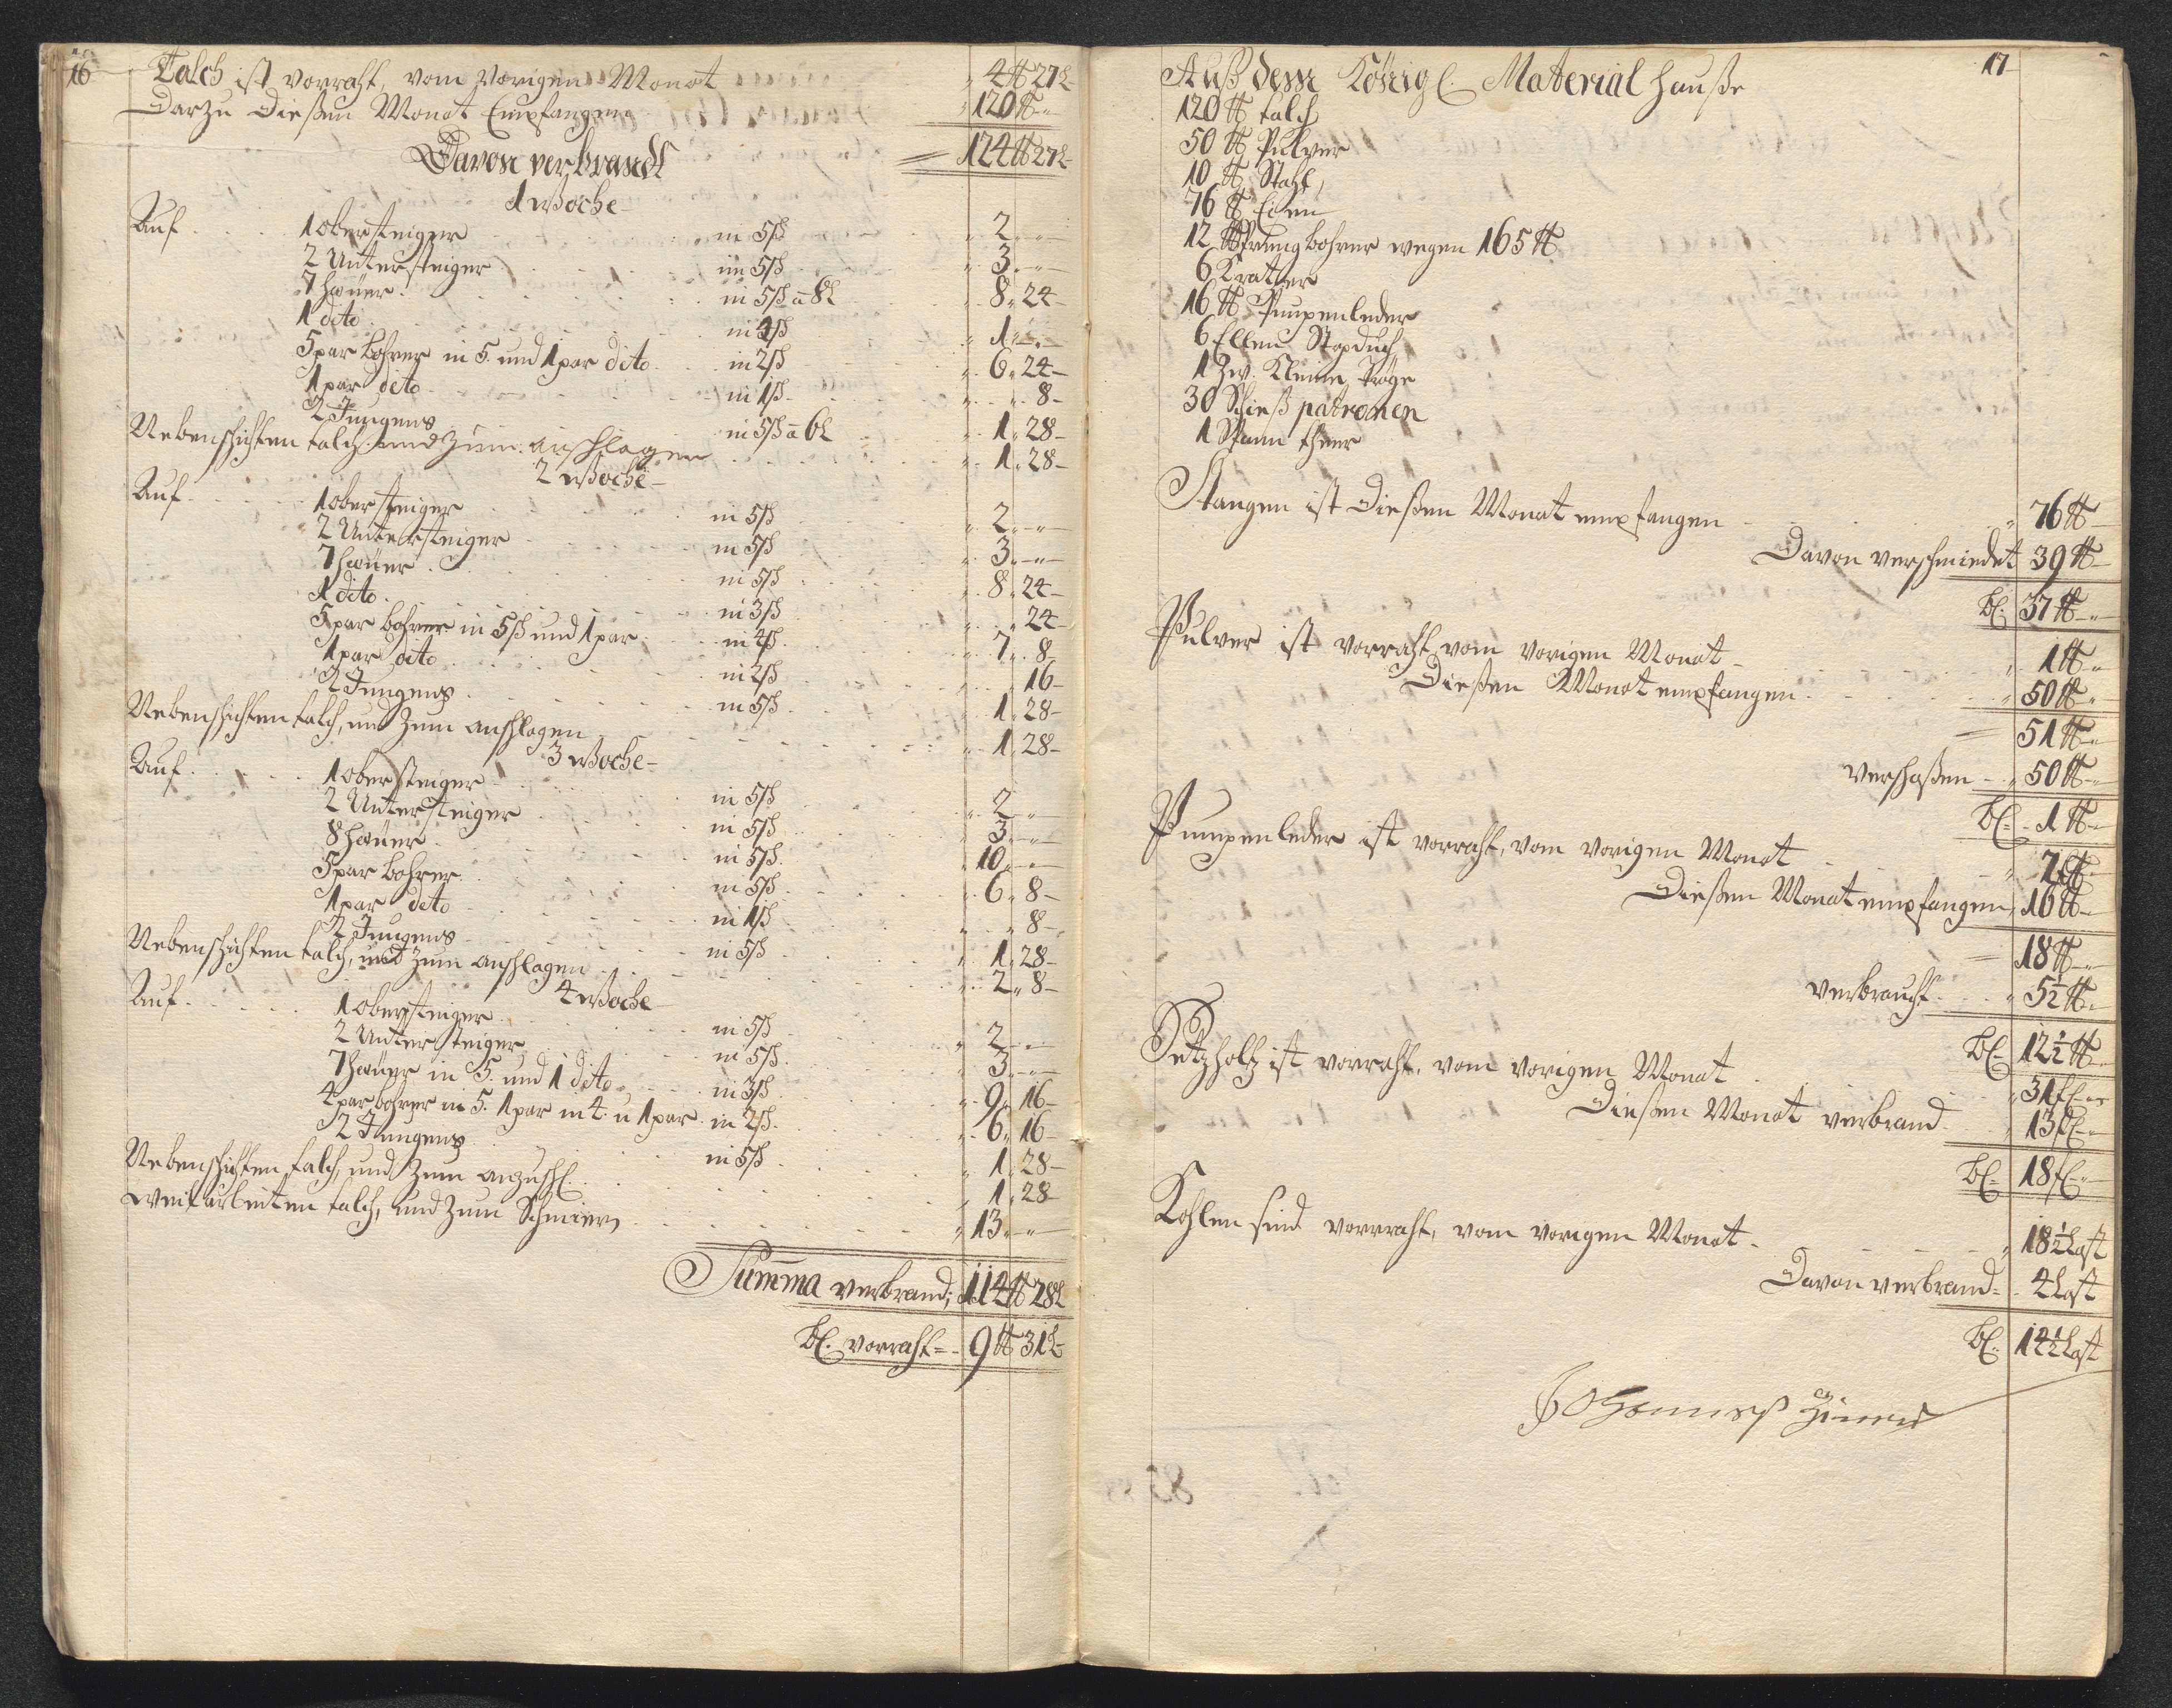 16
Talch ist vorraht, vom vorigen Monat „ 4 ℔ 27 L
Darzu dießen Monat Empfangen „ 120 ℔ „
Davon verbrandt = 124 ℔ 27 L
1 Woche
Auf 1 obersteiger in 5ß „ 2 „
2 Untersteiger in 5ß „ 3 „
7 häuer in 5ß a 8L 8 „ 24
1 dito in 4ß „ 1 „
5 par bohrer in 5. und 1 par dito in 2ß „ 6 „ 24
1 par dito in 1ß „ „ 8
2 Jungens in 5ß a 6L „ 1 „ 28
Nebenschichten talch und zum anschlagen „ 1 „ 28
2 Woche
Auf 1 obersteiger in 5ß „ 2 „
2 Untersteiger in 5ß „ 3 „
7 häuer in 5ß „ 8 „ 24
1 dito in 3ß „ 24
5 par bohrer in 5ß und 1 par in 4ß „ 7 „ 8
1 par dito in 2ß „ 16
2 Jungens in 5ß „ 1 „ 28
Nebenschichten talch, und zum anschlagen „ 1 „ 28
3 Woche
Auf 1 obersteiger in 5ß „ 2 „
2 Untersteiger in 5ß „ 3 „
8 häuer in 5ß „ 10 „
5 par bohrer in 5ß „ 6 „ 8
1 par dito in 1ß „ 8
2 Jungens in 5ß „ 1 „ 28
Nebenschichten talch, und zum anschlagen „ 2 „ 8
4 Woche
Auf 1 obersteiger in 5ß „ 2 „
2 Untersteiger in 5ß „ 3 „
7 häuer in 5. und 1 dito in 3ß „ 9 „ 16
4 par bohrer in 5. 1 par in 4. u 1 par in 2ß „ 6 „ 16
2 Jungens in 5ß „ 1 „ 28
Nebenschichten talch, und zum anzuschl. „ 1 „ 28
talch, und zum Schmiern „ 13 „
Summa verbrand; 114 ℔ 28 L
bl. vorraht = 9 ℔ 31 L
17
Auß dem Königl. Material hauße
120 ℔ talch
50 ℔ Pulver
10 ℔ Stahl,
76 ℔ Eisen
12 Sprengbohrer wegen 165 ℔
6 Kratzer
16 ℔ Pumpenleder
6 Ellen Stopduch
1 Zw. Kleine Tröge
30 Schieß patronen
1 Stann theer
Stangen ist dießen Monat empfangen „ 76 ℔
Davon verschmiedet 39 ℔
bl: 37 ℔ „
Pulver ist vorraht, vom vorigen Monat „ 1 ℔ „
Dießen Monat empfangen „ 50 ℔ „
= 51 ℔ „
verschoßen „ 50 ℔ „
bl: 1 ℔ „
Pumpenleder ist vorraht, vom vorigen Monat „ 2 ℔
Dießen Monat empfangen „ 16 ℔
= 18 ℔ „
verbraucht „ 5½ ℔ „
bl: 12½ ℔
Setzholtz ist vorraht, vom vorigen Monat „ 31 fl „
Dießen Monat verbrand „ 13 fl „
bl: 18 fl „
Kohlen sind vorraht, vom vorigen Monat „ 18½ Last
Davon verbrand = 4 Last
bl: 14½ Last
Johannes